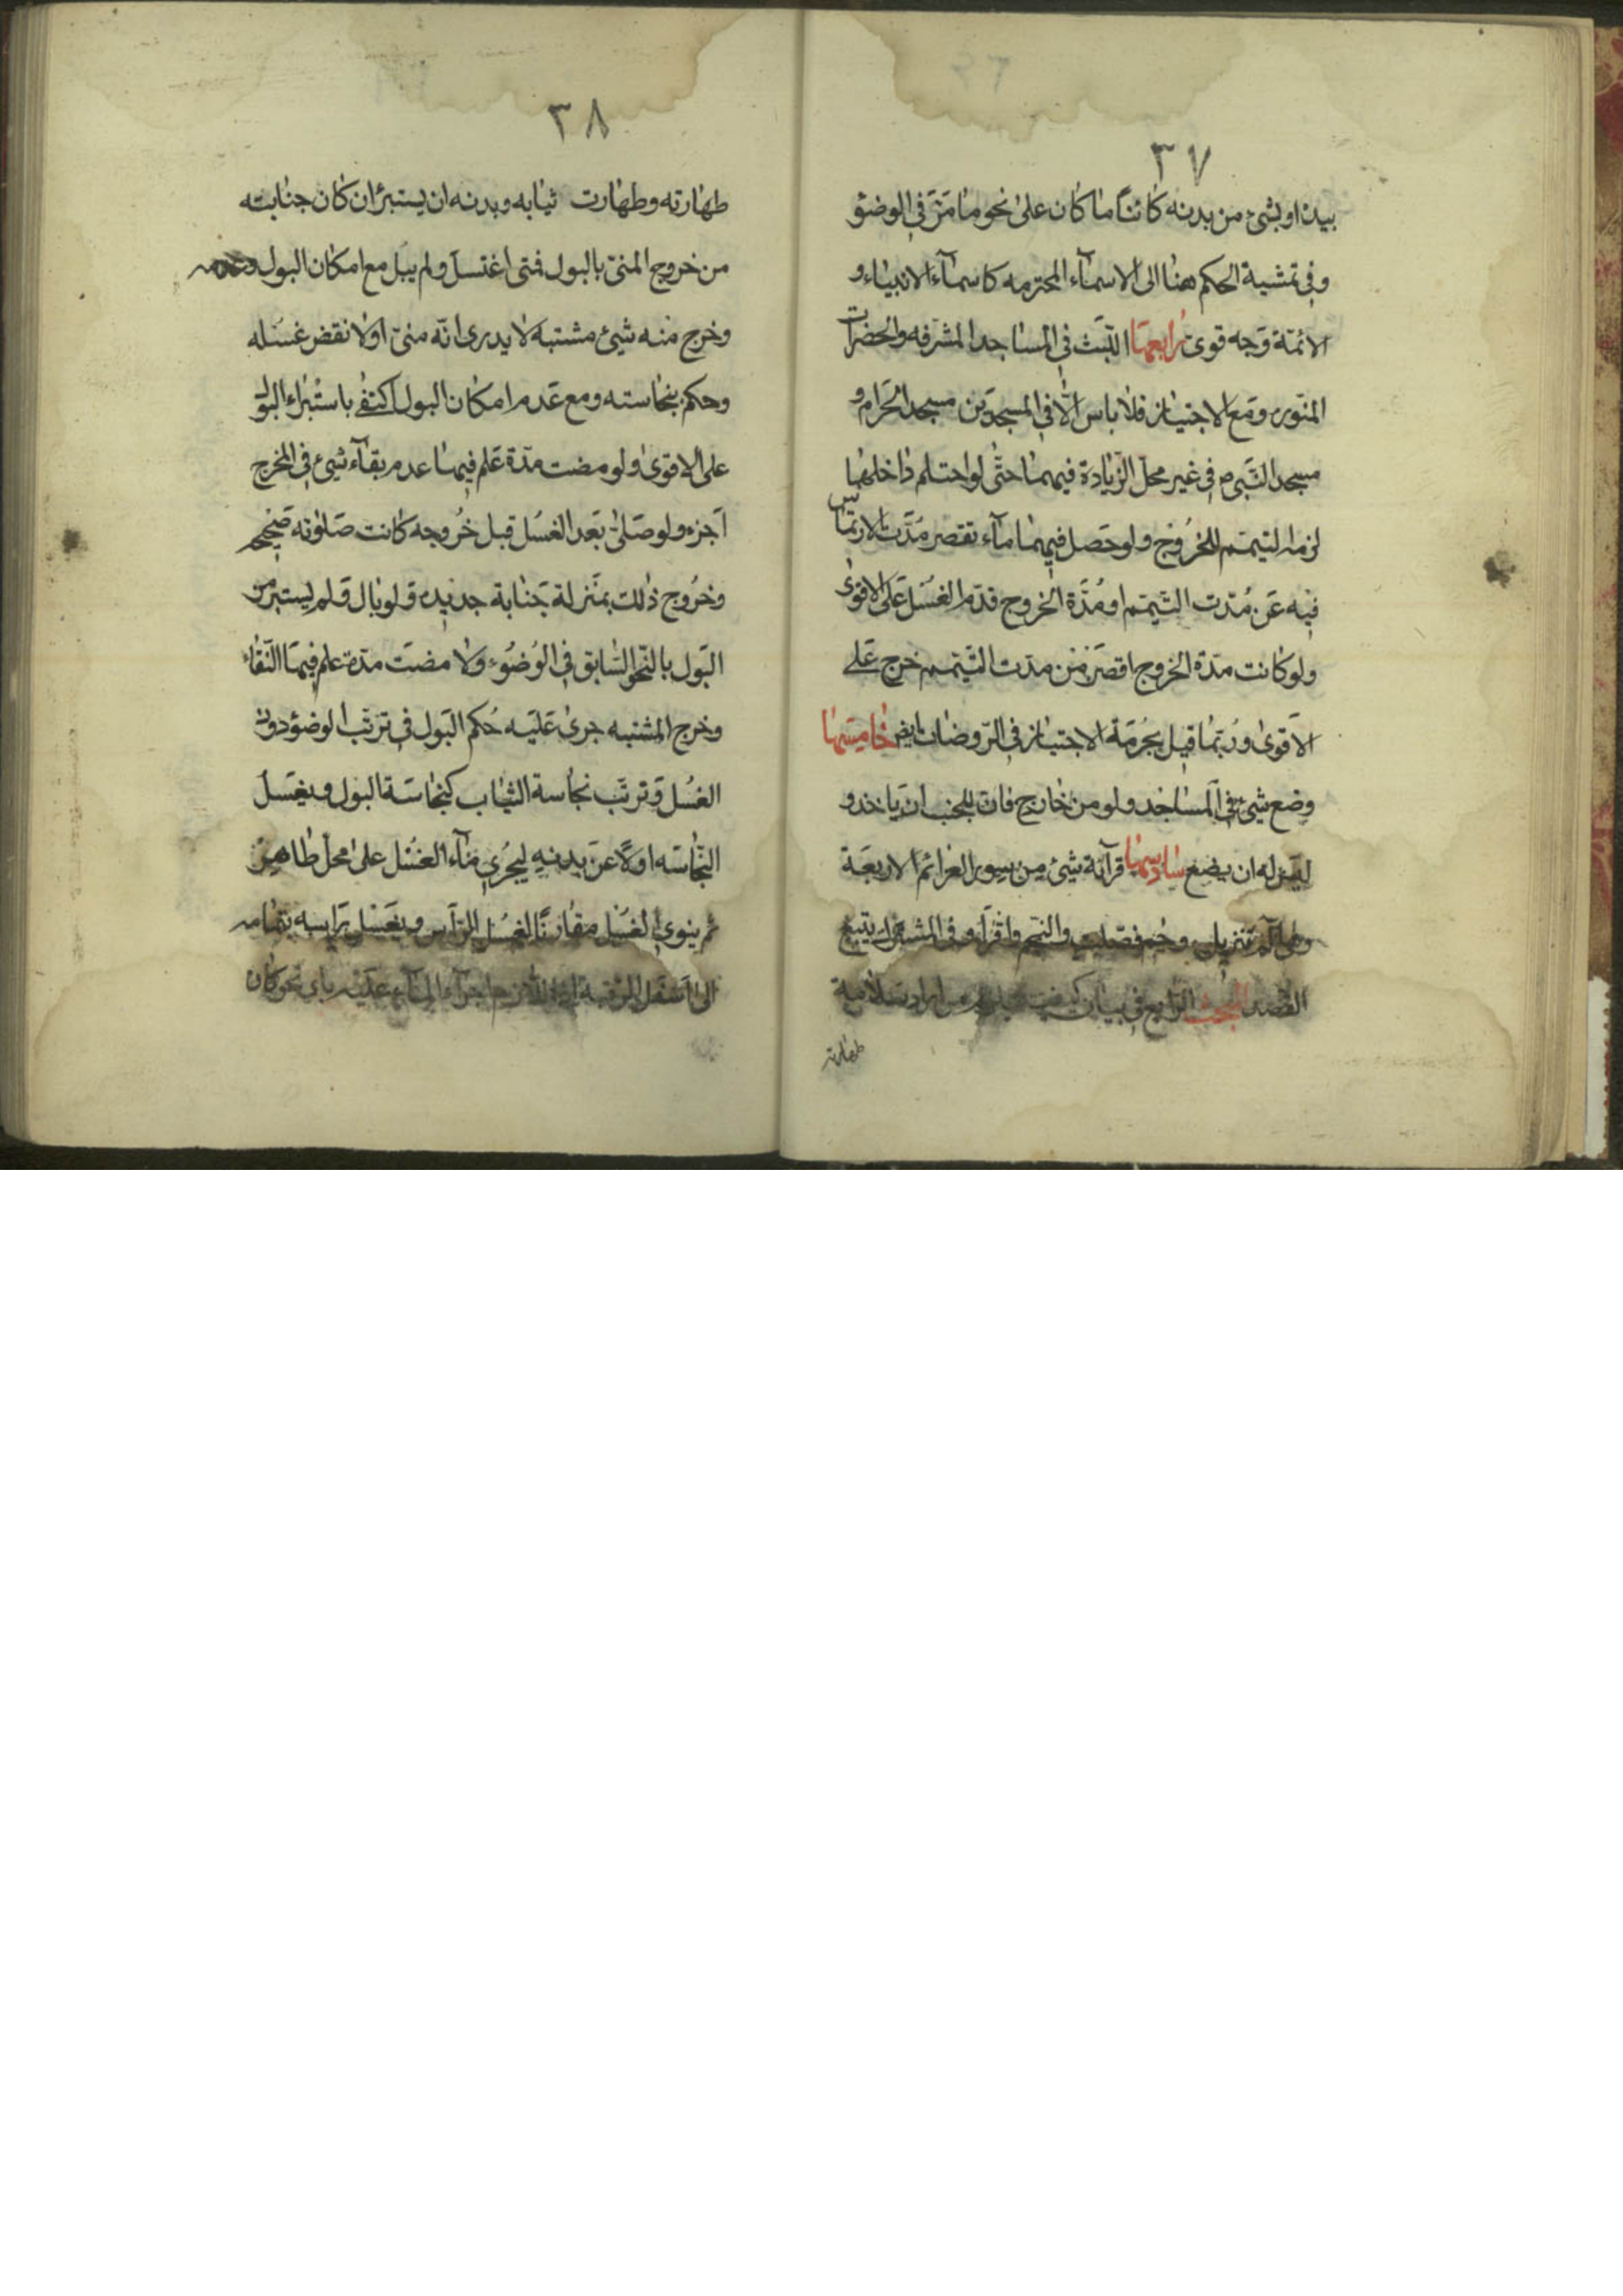 ٣٧
بيده او بشئ من بدنه كائنًا ما كان على نحو ما مرّ فى الوضوء
وفى تمشية الحكم هنا الى الاسمآء المحترمه كاسمآء الانبياء و
الائمّة وجه قوى رابعها اللّبث فى المساجد المشرفه والحضرات
المنوره ومع الاجتياز فلا باس الّا فى المسجدين مسجد الحرام و
مسجد النّبى ص فى غير محلّ الزّيادة فيهما حتّى لو احتلم داخلها
لزمه التيمّم للخروج ولو حصل فيهما مآء تقصر مدّت الارتماس
فيه عن مدّت التّيمّم او مدّة الخروج قدّم الغسل على الاقوى
ولو كانت مدّة الخروج اقصر من مدّت التّيمّم خرج على
الاقوى وربّما قيل بحرمة الاجتياز فى الرّوضات ايض خامسها
وضع شئ فى المساجد ولو من خارج فان للجنب ان ياخذ و
ليس له ان يضع سادسها قرآئة شئ من سور العزائم الاربعة
وهى آلم تنزيل وحم فصّلت والنّجم واقرأ وفى المشترك يتبع
القصد المبحث الرّابع فى بيان كيفيت من اراد سلامة
طهارته
٣٨
طهارته وطهارت ثيابه وبدنه ان يستبرئ ان كان جنابته
من خروج المنىّ بالبول فمتى اغتسل ولم يبل مع امكان البول وعدمه
وخرج منه شيئ مشتبه لا يدرى انّه منىّ اولا نقض غسله
وحكم بنجاسته ومع عدم امكان البول اكتفى باستبراء البول
على الاقوى ولو مضت مدّة علم فيها عدم بقآء شيئ فى المخرج
اجزء ولو صلّى بعد الغسل قبل خروجه كانت صلوته صحيحه
وخروج ذلك بمنزلة جنابة جديده ولو بال ولم يستبرء من
البول بالنّحو السّابق فى الوضوء ولا مضت مدّة علم فيها النّقاء
وخرج المشتبه جرى عليه حكم البول فى ترتّب الوضؤ دون
الغسل وترتّب نجاسة الثياب كنجاسة البول ويغسل
النّجاسه اولًا عن بدنه ليجرى مآء الغسل على محلّ طاهر
ثم ينوى الغسل مقارنًا لغسل الرّأس ويغسل رأسه بتمامه
الى اسفل الرّقبة اذ اللّازم اجرآء المآء عليه باى نحو كان